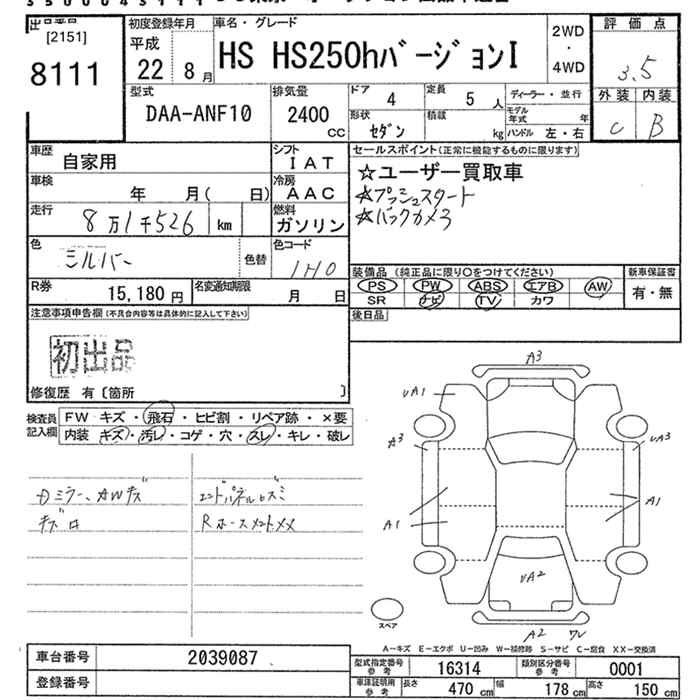 出品番号
[2151]
8111
初度登録年月
平成
22年 8月
車名・グレード
HS HS250hバージョンI
2WD
・
4WD
評価点
3.5
外装 内装
C B
型式
DAA-ANF10
排気量
2400
cc
ドア 4
定員 5人
ディーラー・並行
形状 セダン
積載 kg
モデル年式 年
ハンドル 左・右
車歴 自家用
シフト IAT
車検 年 月( 日)
冷房 AAC
走行 8万1千526 km
燃料 ガソリン
色 シルバー
色替
色コード 1H0
R券 15,180円
名変通知期限 月 日
セールスポイント(正常に機能するものに限ります)
☆ユーザー買取車
☆プッシュスタート
☆バックカメラ
装備品(純正品に限り○をつけてください)
PS PW ABS エアB AW
SR ナビ TV カワ
新車保証書
有・無
後日品
注意事項申告欄(不具合内容等は具体的に記入して下さい)
初出品
修復歴 有〔箇所 〕
検査員記入欄
FW キズ・飛石・ヒビ割・リペア跡・×要
内装 キズ・汚レ・コゲ・穴・スレ・キレ・破レ
Dミラー、AWキズ
キズ
エンドパネルヒズミ
Rホースメントメメ
A3
UA1
A3
UA3
A1
A1
UA2
A2
スペア
A-キズ E-エクボ U-凹み W-補修跡 S-サビ C-腐食 XX-交換済
車台番号 2039087
登録番号
型式指定番号参考 16314
類別区分番号参考 0001
車庫証明用参考
長さ 470cm
幅 178cm
高さ 150cm